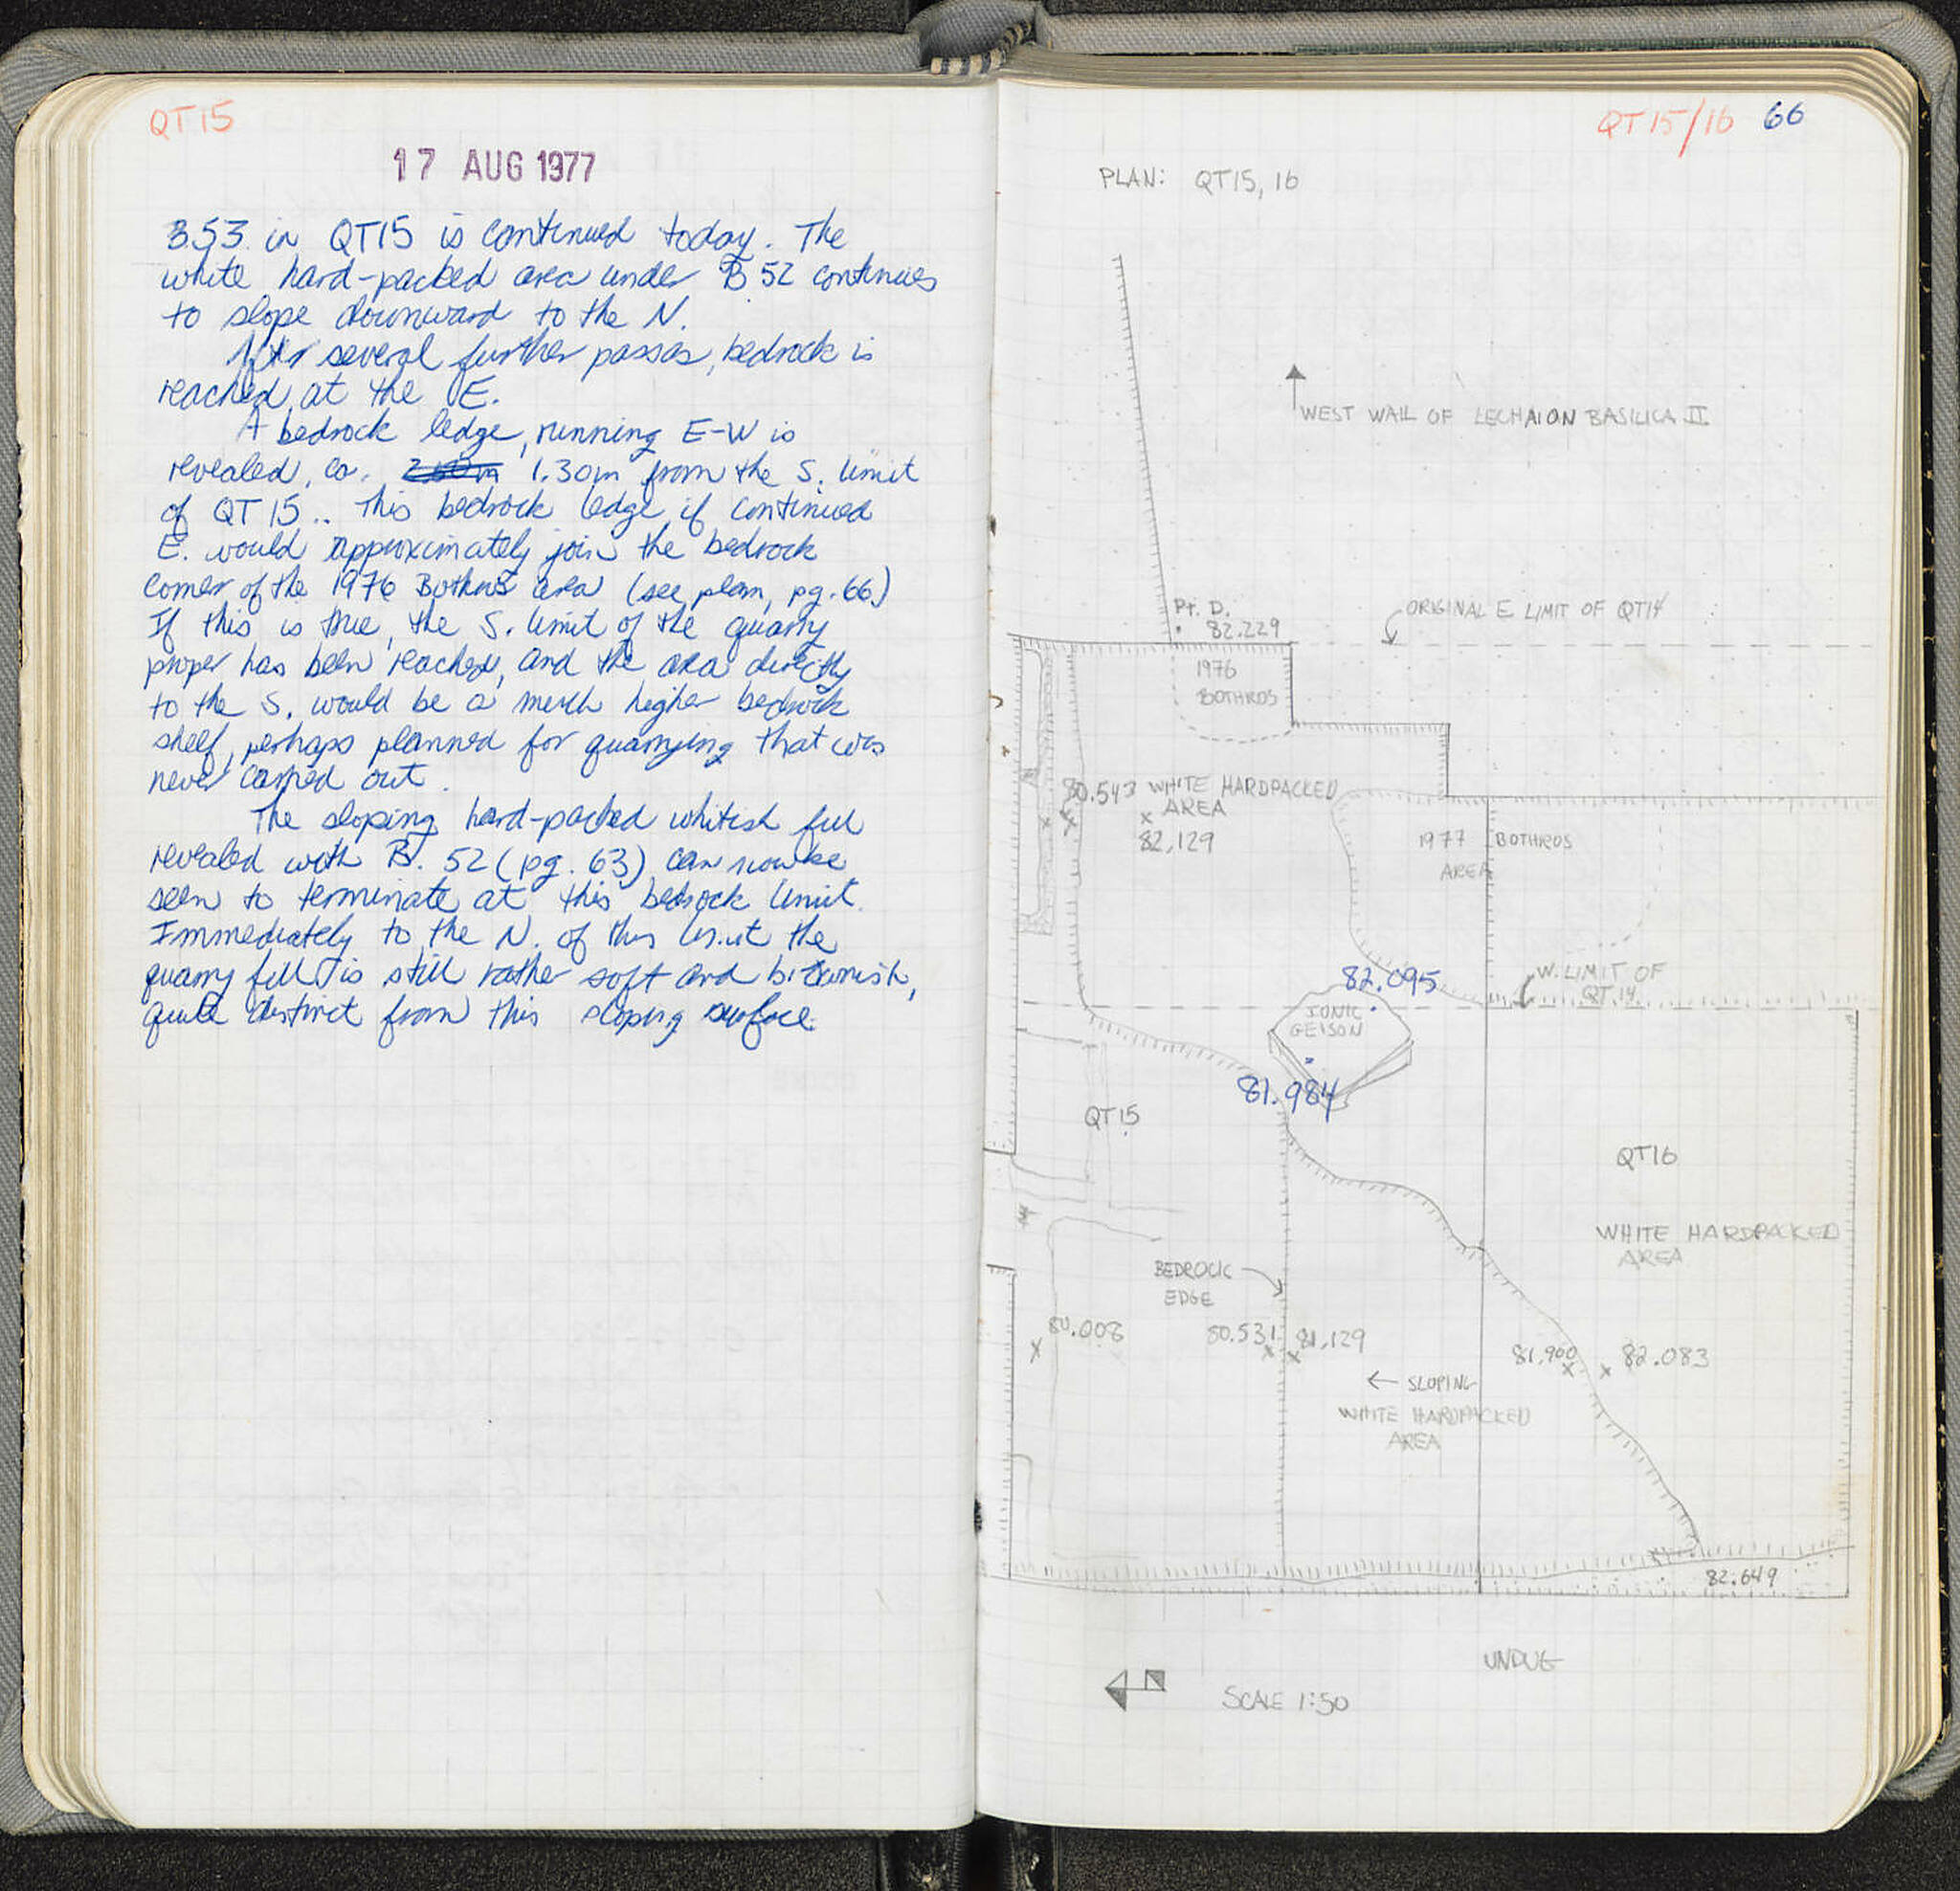 QT15
17 AUG 1977
B.53 in QT15 is continued today. The
white hard-packed area under B 52 continues
to slope downward to the N.
After several further passes, bedrock is
reached at the E.
A bedrock ledge, running E-W is
revealed, ca. 1.30m from the S. limit
of QT 15.. This bedrock ledge if continued
E. would approximately join the bedrock
corner of the 1976 Bothros area (see plan, pg. 66)
If this is true, the S. limit of the quarry
proper has been reached, and the area directly
to the S. would be a much higher bedrock
shelf, perhaps planned for quarrying that was
never carried out.
The sloping hard-packed whitish fill
revealed with B. 52 (pg. 63) can now be
seen to terminate at this bedrock limit.
Immediately to the N. of this limit the
quarry fill is still rather soft and brownish,
quite distinct from this sloping surface.
QT15/16 66
PLAN: QT15, 16
WEST WALL OF LECHAION BASILICA II
Pt. D.
82.229
ORIGINAL E LIMIT OF QT14
1976
BOTHROS
80.543 WHITE HARDPACKED
AREA
82,129
1977 BOTHROS
AREA
82.095
W. LIMIT OF
QT.14.
IONIC
GEISON
81.984
QT15
QT16
WHITE HARDPACKED
AREA
BEDROCK
EDGE
80.008
80.531
81,129
81,900
82.083
← SLOPING
WHITE HARDPACKED
AREA
82.649
UNDUG
SCALE 1:50